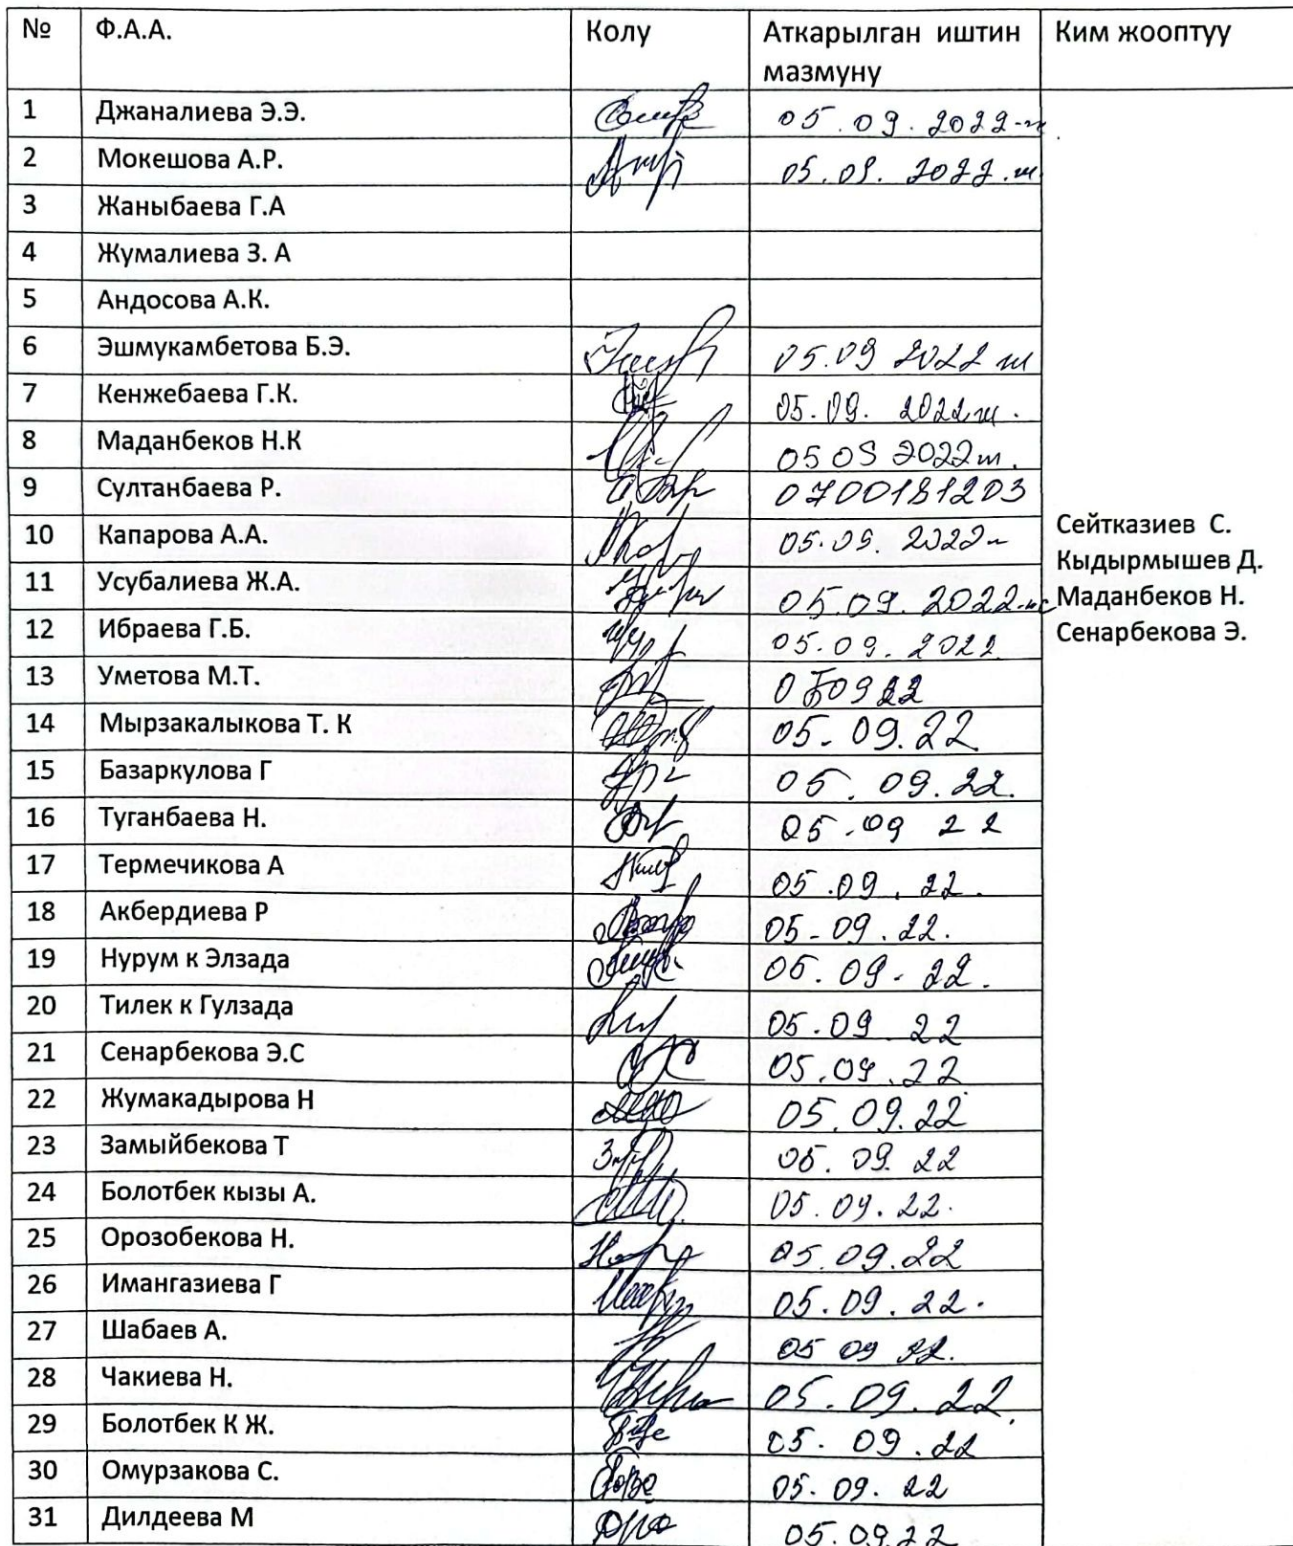 № Ф.А.А. Колу Аткарылган иштин мазмуну Ким жооптуу
1 Джаналиева Э.Э. 05.09.2022-ж
2 Мокешова А.Р. 05.09.2022.ж
3 Жаныбаева Г.А
4 Жумалиева З. А
5 Андосова А.К.
6 Эшмукамбетова Б.Э. 05.09 2022 ж
7 Кенжебаева Г.К. 05.09. 2022ж.
8 Маданбеков Н.К 05 09 2022ж.
9 Султанбаева Р. 0700181203
10 Капарова А.А. 05.09.2022ж
11 Усубалиева Ж.А. 05.09.2022-ж
12 Ибраева Г.Б. 05.09.2022
13 Уметова М.Т. 050922
14 Мырзакалыкова Т. К 05.09.22
15 Базаркулова Г 05.09.22.
16 Туганбаева Н. 05.09 22
17 Термечикова А 05.09.22.
18 Акбердиева Р 05-09.22.
19 Нурум к Элзада 05.09-22.
20 Тилек к Гулзада 05.09 22
21 Сенарбекова Э.С 05.09.22
22 Жумакадырова Н 05.09.22
23 Замыйбекова Т 05.09.22
24 Болотбек кызы А. 05.09.22.
25 Орозобекова Н. 05.09.22
26 Имангазиева Г 05.09.22.
27 Шабаев А. 05 09 22.
28 Чакиева Н. 05.09.22.
29 Болотбек К Ж. 05.09.22
30 Омурзакова С. 05.09.22
31 Дилдеева М 05.09.22
Сейтказиев С.
Кыдырмышев Д.
Маданбеков Н.
Сенарбекова Э.